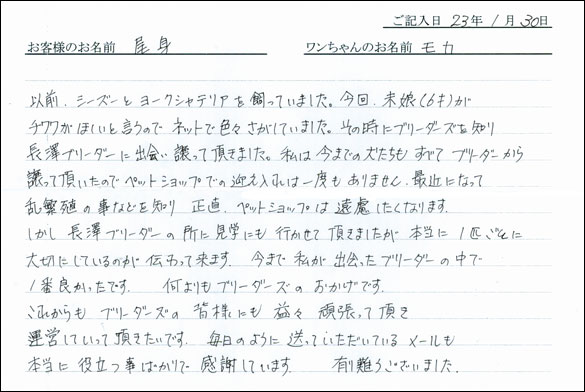 ご記入日 23年 1月 30日
お客様のお名前 尾身 ワンちゃんのお名前 モカ
以前、シーズーとヨークシャテリアを飼っていました。今回、末娘(6才)が
チワワがほしいと言うので ネットで色々さがしていました。その時にブリーダーズを知り
長澤ブリーダーに出会い譲って頂きました。私は今までの犬たちも すべて ブリーダーから
譲って頂いたのでペットショップでの迎え入れは一度もありません。最近になって
乱繁殖の事などを知り 正直、ペットショップは遠慮したくなります。
しかし 長澤ブリーダーの所に見学にも 行かせて 頂きましたが 本当に 1匹ごとに
大切にしているのが 伝わって来ます。 今まで 私が 出会ったブリーダーの中で
1番良かったです。 何よりもブリーダーズの おかげです。
これからも ブリーダーズの 皆様にも 益々 頑張って 頂き
運営していって 頂きたいです。 毎日のように 送っていただいている メールも
本当に 役立つ事ばかりで 感謝しています。 有り難うございました。